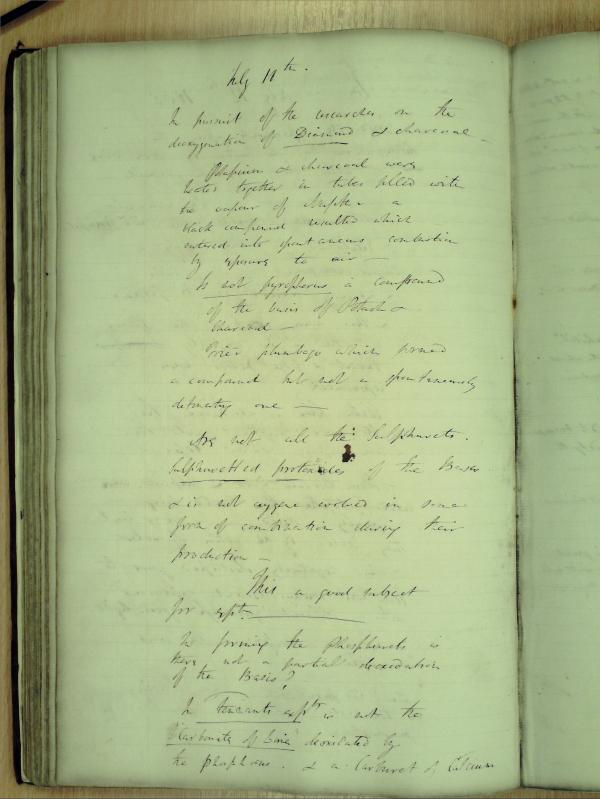 July 11th.
In pursuit of the researches on the
deoxygenation of Diamond & charcoal -
Potassium & charcoal were
heated together in tubes filled with
the vapour of Naptha a
black compound resulted which
entered into spontaneous combustion
by exposure to air -
Is not pyrophorus a compound
of the basis of Potash &
Charcoal -
Tried plumbago which formed
a compound but not a spontaneously
detonating one -
Are not all the Sulphurets.
Sulphuretted protoxides of the Bases
& is not oxygene evolved in some
form of combination during their
production -
This a good subject
for expt.
In forming the Phosphurets is
there not a partial deoxidation
of the Basis?
In Tennants expts is not the
Carbonate of Lime deoxidated by
the phosphorus. & a Carburet of Calcium